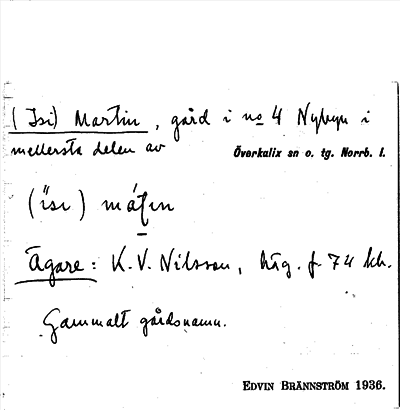 (Isi) Martin, gård i no 4 Nybyn i
mellersta delen av
Överkalix sn o. tg. Norrb. l.
Ägare: K. V. Nilsson, häg. f. 74 kh.
Gammalt gårdsnamn.
EDVIN BRÄNNSTRÖM 1936.